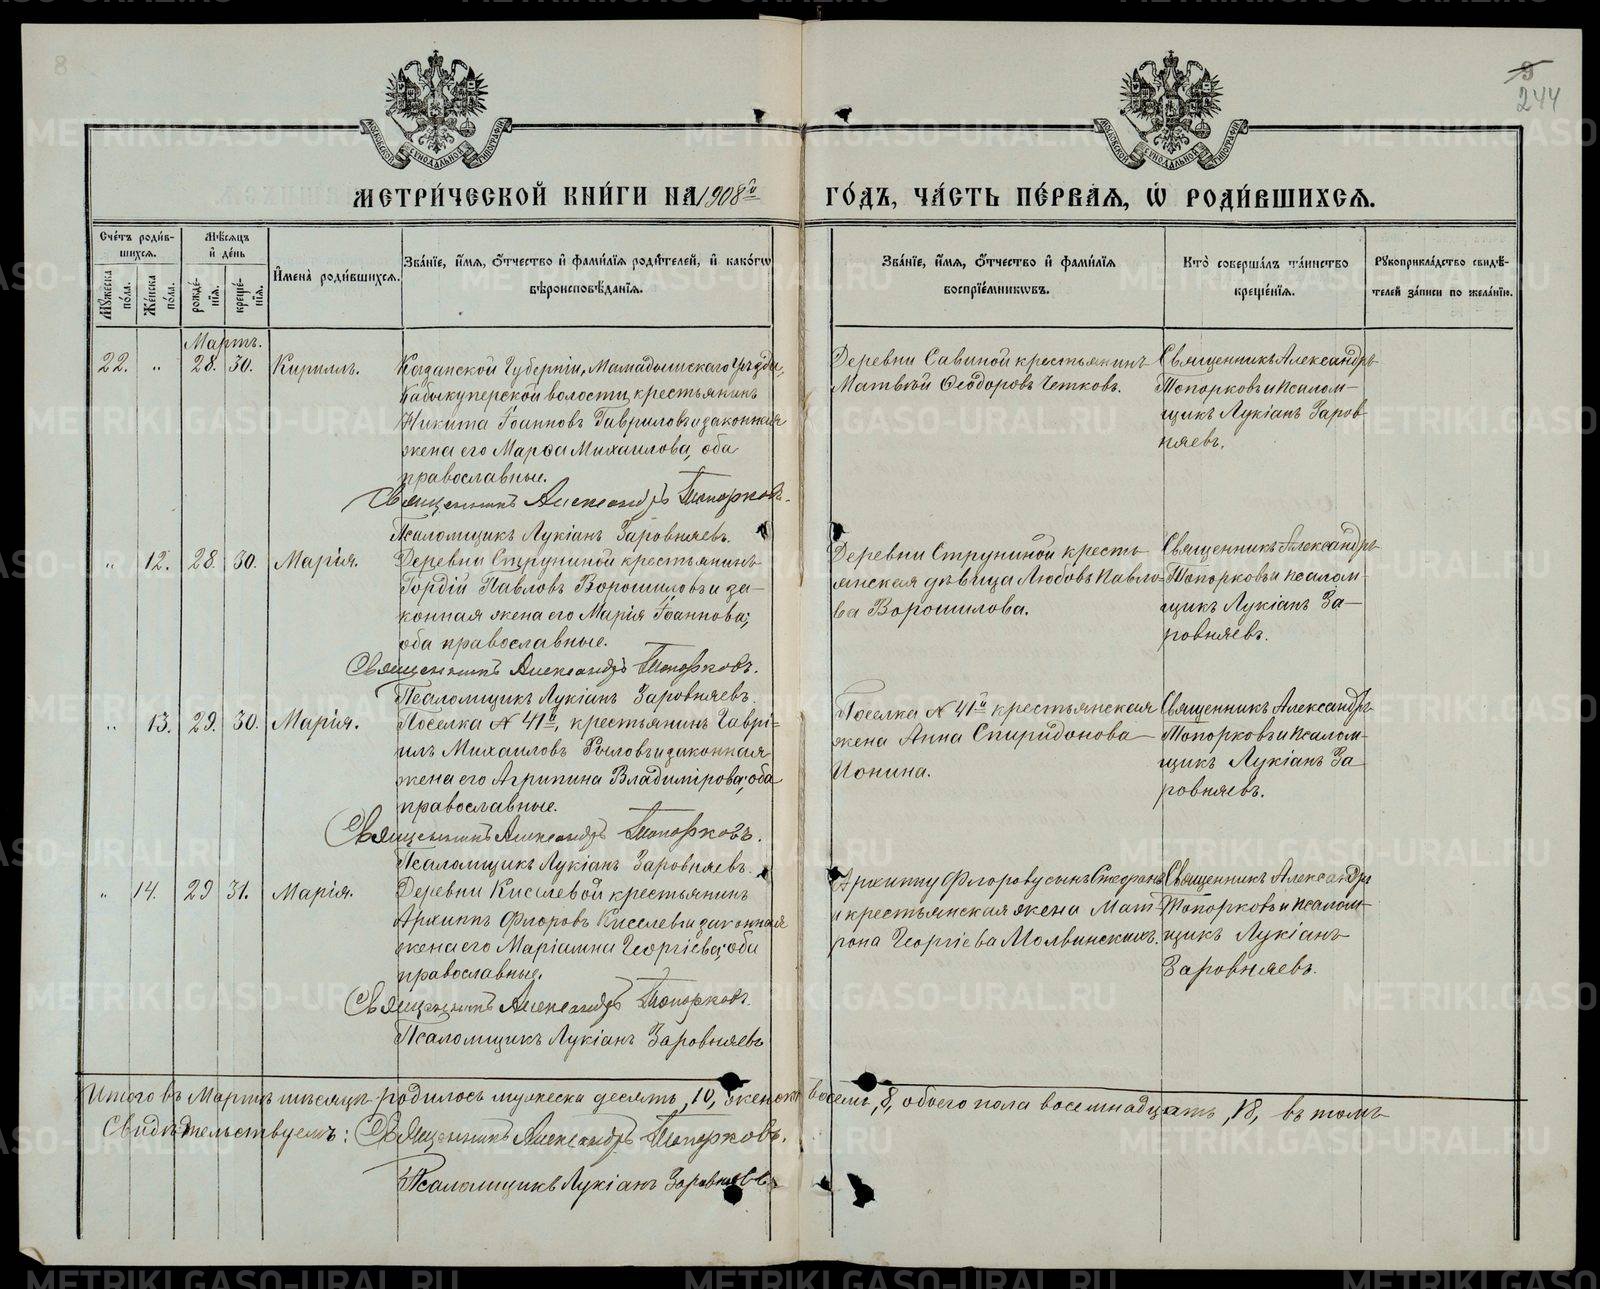 8
9
244
МОСКОВСКОЙ СѴНОДАЛЬНОЙ ТИПОГРАФІИ
МОСКОВСКОЙ СѴНОДАЛЬНОЙ ТИПОГРАФІИ
МЕТРИ́ЧЕСКОЙ КНИ́ГИ НА 1908й ГО́ДЪ, ЧА́СТЬ ПЕ́РВАЯ, Ѡ РОДИ́ВШИХСЯ.
Сче́тъ роди́в-
шихся.
Мꙋ́жеска
по́ла.
Же́нска
по́ла.
Мѣ́сяцъ
и҆ де́нь
рожде́-
нїя.
креще́-
нїя.
И҆мена̀ роди́вшихся.
Зва́нїе, и҆́мя, ѻ҆́тчество и҆ фами́лїя роди́телей, и҆ како́гѡ
вѣроисповѣ́данїя.
Зва́нїе, и҆́мя, ѻ҆́тчество и҆ фами́лїя
воспрїе́мникѡвъ.
Кто̀ соверша́лъ та́инство
креще́нїя.
Рꙋкоприкла́дство свидѣ́-
телей за́писи по жела́нїю.
Мартъ.
22. " 28. 30. Кириллъ.
Казанской Губерніи, Мамадышскаго Уѣзда,
Кабыкуперской волости, крестьянинъ
Никита Іоанновъ Гавриловъ и законная
жена его Марѳа Михаилова, оба
православные.
Священникъ Александръ Топорковъ.
Псаломщикъ Лукіанъ Заровняевъ.
Деревни Савиной крестьянинъ
Матвѣй Ѳеодоровъ Четковъ.
Священникъ Александръ
Топорковъ и псалом-
щикъ Лукіанъ Заров
няевъ.
" 12. 28. 30. Марія.
Деревни Струниной крестьянинъ
Гордій Павловъ Ворошиловъ и за-
конная жена его Марія Іоаннова;
оба православные.
Священникъ Александръ Топорковъ.
Псаломщикъ Лукіанъ Заровняевъ.
Деревни Струниной кресть
янская дѣвица Любовь Павло-
ва Ворошилова.
Священникъ Александръ
Топорковъ и псалом-
щикъ Лукіанъ За-
ровняевъ.
" 13. 29. 30. Марія.
Поселка № 41й, крестьянинъ Гаврі-
илъ Михаиловъ Рыловъ и законная
жена его Агрипина Владимірова; оба
православные.
Священникъ Александръ Топорковъ.
Псаломщикъ Лукіанъ Заровняевъ.
Поселка № 41й крестьянская
жена Анна Спиридонова
Ионина.
Священникъ Александръ
Топорковъ и псалом-
щикъ Лукіанъ За
ровняевъ.
" 14. 29 31. Марія.
Деревни Киселевой крестьянинъ
Архиппъ Флоровъ Киселевъ и законная
жена его Маріамна Георгіева; оба
православные.
Священникъ Александръ Топорковъ.
Псаломщикъ Лукіанъ Заровняевъ
Архиппу Флорову сынъ Стефанъ
и крестьянская жена Мат-
рона Георгіева Молвинскихъ.
Священникъ Александръ
Топорковъ и псалом-
щикъ Лукіанъ
Заровняевъ.
Итого въ Мартѣ мѣсяцѣ родилось мужеска десять, 10, женска восемь, 8, обоего пола восемнадцать, 18, въ томъ
Свидѣтельствуемъ: Священникъ Александръ Топорковъ.
Псаломщикъ Лукіанъ Заровняевъ
METRIKI.GASO-URAL.RU